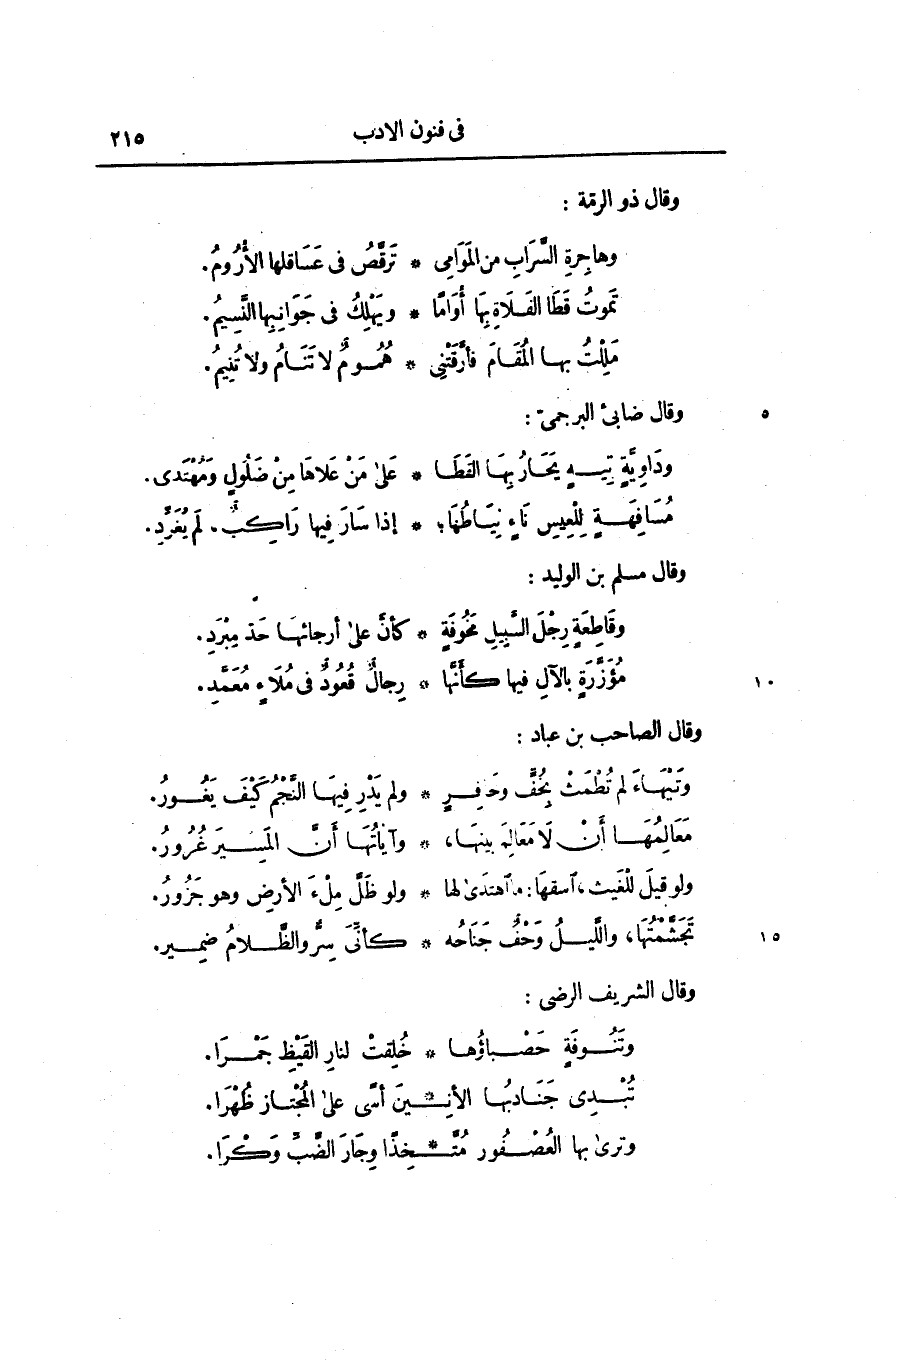 فى فنون الادب ٢١٥
وقال ذو الرمّة :
وهاجِرةِ السَّرَابِ من المَوَامِى * تَرقَّصُ فى عَسَاقلها الأُرُومُ.
تَموتُ قَطَا الفَلَاةِ بهَا أُوَامًا * ويَهْلِكُ فى جَوَانِبِها النَّسِيمُ.
مَلِلْتُ بها المُقَامَ فأرَّقَتْنِى * هُمُومٌ لا تَنَامُ ولا تُنِيمُ.
وقال ضابئ البرجمىّ : ٥
ودَاوِيَّةٍ تِيهٍ يَحَارُ بِهَا القَطَا * عَلىٰ مَنْ عَلَاهَا مِنْ ضَلُولٍ ومُهْتَدى.
مُسَافِهَةٍ لِلْعِيسِ نَاءٍ نِيَاطُهَا؛ * إذا سَارَ فِيها رَاكِبٌ. لَم يُغَرِّدِ.
وقال مسلم بن الوليد :
وقَاطِعَةٍ رِجْلَ السَّبِيلِ مَخُوفَةٍ * كأنَّ علىٰ أرجائهَا حَدّ مِبْرَدِ.
مُؤَزَّرَةٍ بالآلِ فيها كأنَّها * رِجالٌ قُعُودٌ فى مُلَاءٍ مُعَمَّدِ. ١٠
وقال الصاحب بن عباد :
وتَيْهاءَ لم تُطْمَثْ بِخُفٍّ وحَافِرٍ * ولم يَدْرِ فِيهَا النَّجْمُ كَيْفَ يَغُورُ.
مَعَالِمُهَا أَنْ لَا مَعَالِمَ بينهَا، * وآياتُهَا أَنَّ المَسِيرَ غُرُورُ.
ولو قيلَ للْغَيث، آسقهَا: ما آهتدَىٰ لها * ولو ظَلَّ مِلْءَ الأرضِ وهو جَزُورُ.
تَجَشَّمْتُهَا، واللَّيلُ وَحْفٌ جَنَاحُه * كأنِّىَ سِرٌّ والظَّلَامُ ضمِير. ١٥
وقال الشريف الرضى :
وتَنُوفَةٍ حَصْباؤُها * خُلِقتْ لنارِ القَيْظِ جَمْرَا.
تُبْدِى جَنَادبُها الأنِينَ أسًى علىٰ المُجْتاز ظُهْرَا.
وترىٰ بها العُصْفُور مُتَّخِذًا وِجَارَ الضَّبِّ وَكْرَا.